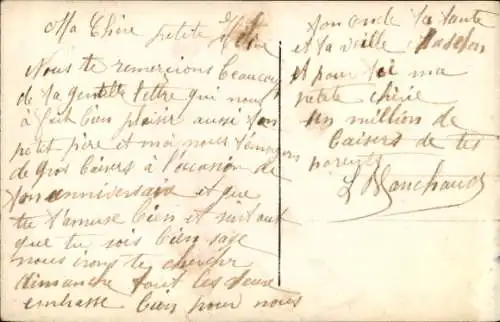 Ma Chère petite
Nous te remercions beaucoup
de ta gentille lettre qui nous
a fait bien plaisir aussi ton
petit père et moi nous t'envoyon
de gros baisers à l'occasion de
ton anniversaire et que
tu t'amuse bien et surtout
que tu sois bien sage
nous irons te chercher
dimanche tout les deux
embrasse bien pour nous
ton oncle ta tante
et ta vieille
et pour toi ma
petite chérie
un million de
baisers de tes
parents